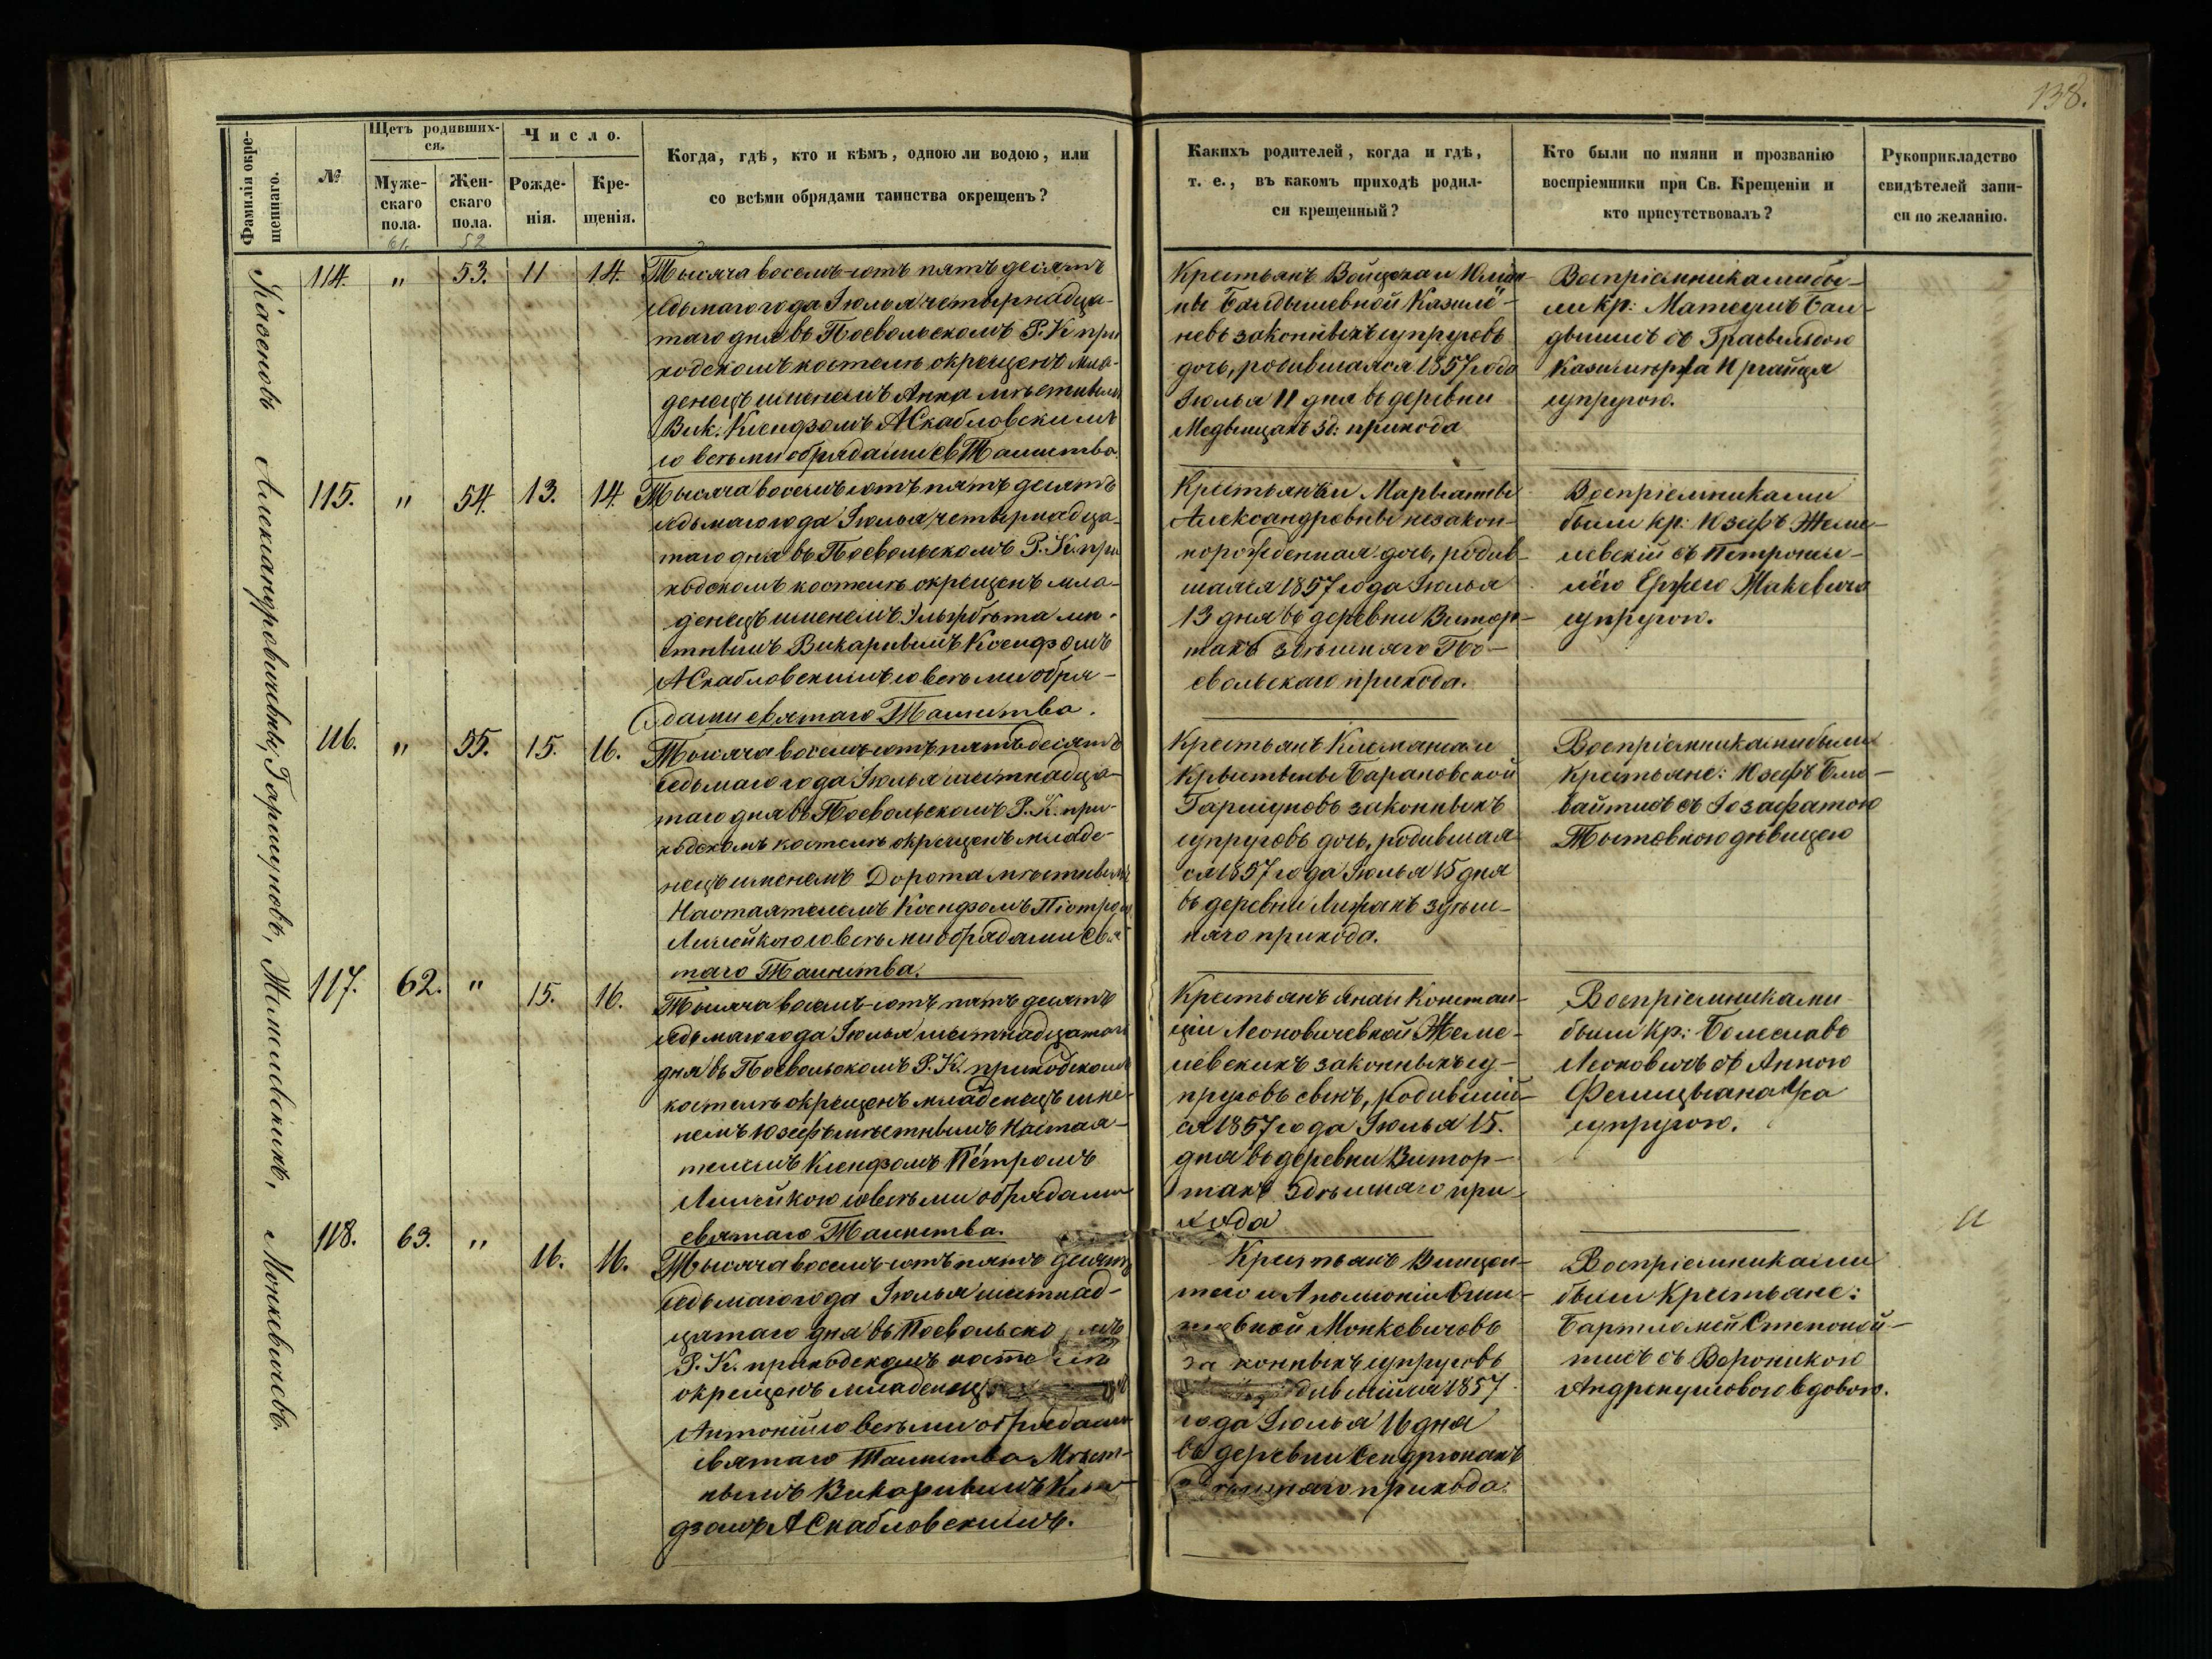 138.
Фамиліи окре-
щеннаго.
№
Щетъ родивших-
ся.
Муже-
скаго
пола.
Жен-
скаго
пола.
Число.
Рожде-
нія.
Кре-
щенія.
Когда, гдѣ, кто и кѣмъ, одною ли водою, или
со всѣми обрядами таинства окрещенъ?
Какихъ родителей, когда и гдѣ,
т. е., въ какомъ приходѣ родил-
ся крещенный?
Кто были по имяни и прозванію
воспріемники при Св. Крещеніи и
кто присутствовалъ?
Рукоприкладство
свидѣтелей запи-
си по желанію.
61. 52
114. " 53. 11 14.
Тысяча восемь-сотъ пятьдесятъ
седьмаго года Іюлья четырнадца-
таго дня въ Посвольскомъ Р. К при
ходскомъ костелѣ окрещенъ мла-
денецъ именемъ Анна мѣстнымъ
Вик. Ксендзомъ А Скабловскимъ
со всѣми обрядами св Таинства.
Крестьянъ Войцеха и
ны Балдышевной
невъ законныхъ супруговъ
дочь, родившаяся 1857 года
Іюлья 11 дня въ деревни
зд: прихода
Воспріемниками бы-
ли кр: Матеушъ Бал-
дышъ съ
супругою.
115. " 54. 13. 14.
Тысяча восемь сотъ пятьдесятъ
седьмаго года Іюлья четырнадца-
таго дня въ Посвольскомъ Р. К. при
ходскомъ костелѣ окрещенъ мла-
денецъ именемъ Эльжбѣта мѣ-
стнымъ Викарнымъ Ксендзомъ
А Скабловскимъ со всѣми обря-
дами святаго Таинства.
Крестьянки Марьянны
Александровны незакон-
норожденная дочь, родив-
шаяся 1857 года Іюлья
13 дня въ деревни Витор-
танъ здѣшняго По-
свольскаго прихода.
Воспріемниками
были кр: Юзефъ Желе-
левскій съ Петронел-
лёю Ержего Жакевича
супругою.
116. " 55. 15. 16.
Тысяча восемь-сотъ пятьдесятъ
седьмаго года Іюлья шестнадца-
таго дня въ Посвольскомъ Р. К. при-
ходскомъ костелѣ окрещенъ младе-
нецъ именемъ Дорота мѣстнымъ
Настаятелемъ Ксендзомъ Піотромъ
Лилейкою со всѣми обрядами Свя
таго Таинства.
Крестьянъ Клеманса и
Крыстыны Барановской
Гаршуновъ законныхъ
супруговъ дочь, родившая-
ся 1857 года Іюлья 15 дня
въ деревни здѣш-
няго прихода.
Воспріемниками были
Крестьяне: Юзефъ Бли-
вайтисъ съ Іозафатою
дѣвицею
117. 62. " 15. 16.
Тысяча восемь-сотъ пятьдесятъ
седьмаго года Іюлья шестнадцатаго
дня въ Посвольскомъ Р. К. приходскомъ
костелѣ окрещенъ младенецъ име-
немъ Юзефъ мѣстнымъ Настая-
телемъ Ксендзомъ Пётромъ
Лилейкою совсѣми обрядами
святаго Таинства.
Крестьянъ Яна и Констан-
ціи Леоновичевной Желе-
левскихъ законныхъ су-
пруговъ сынъ, родившій-
ся 1857 года Іюлья 15.
дня въ деревни Витор-
танъ здѣшнаго при
хода
Воспріемниками
были Кр: Болеславъ
Леоновичъ съ Анною
супругою.
118. 63. " 16. 16.
Тысяча восемь-сотъ пятьдесятъ
седьмаго года Іюлья шестнад-
цатаго дня въ Посвольско мъ
Р. К. приходскомъ косте лѣ
окрещенъ младенецъ
Антоній со всѣми обрядами
святаго Таинства Мѣст-
нымъ Викарнымъ Ксен
дзомъ А Скабловскимъ.
Крестьянъ Винцен-
тего и Аполоніи
Монкевичовъ
за конныхъ супруговъ
дившійся 1857
года Іюлья 16 дня
въ деревни
здѣшняго прихода.
Воспріемниками
были Крестьяне:
Бартломей Степонай-
тисъ съ Вероникою
Андрекушовою вдовою.
Касеновъ Александровичевны, Гаршуновъ, Монкевичовъ.